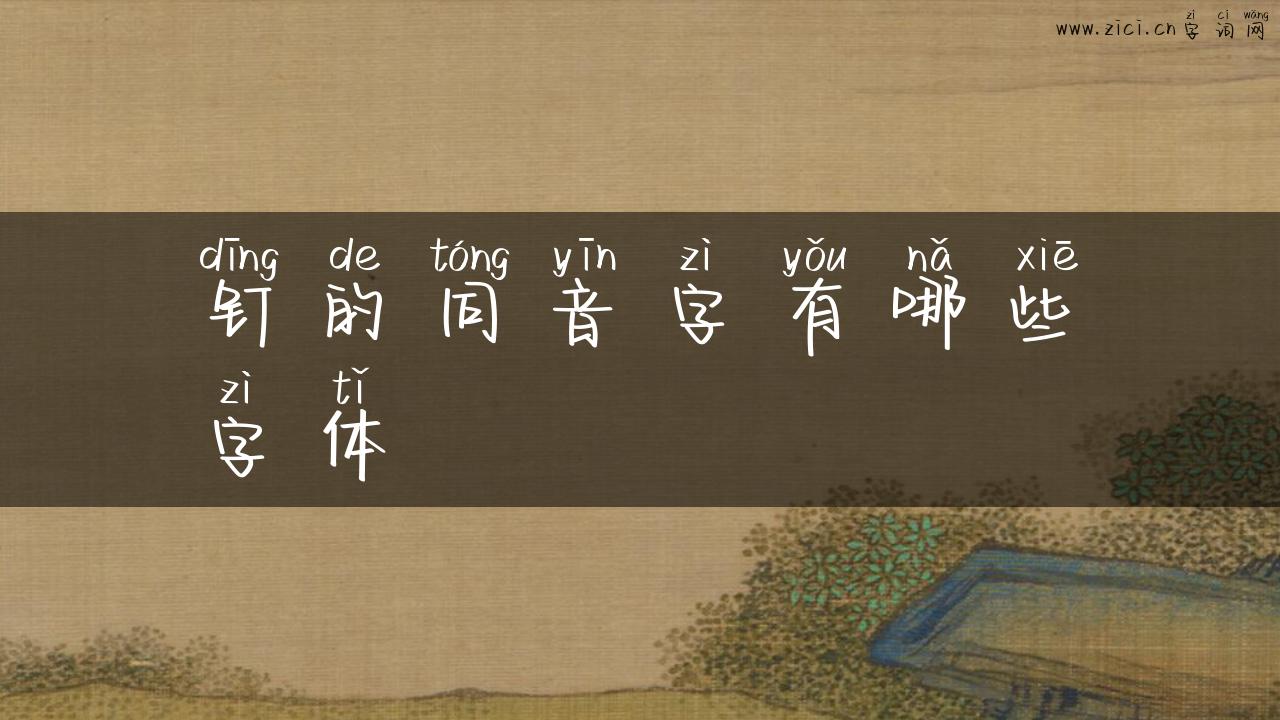 zì cí wǎng
www.zici.cn 字 词 网
dīng de tóng yīn zì yǒu nǎ xiē
钉 的 同 音 字 有 哪 些
zì tǐ
字 体